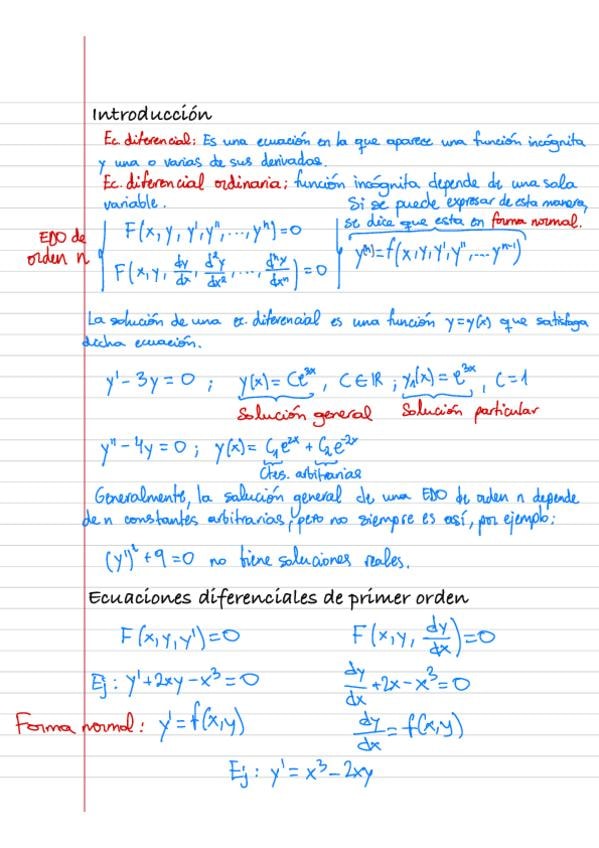 Introducción
Ec. diferencial: Es una ecuación en la que aparece una función incógnita
y una o varias de sus derivadas.
Ec. diferencial ordinaria; función incógnita depende de una sola
variable.
Si se puede expresar de esta manera,
se dice que esta en forma normal.
EDO de
orden n
F(x, y, y', y'', ..., yⁿ) = 0
F(x, y, dy/dx, d²y/dx², ..., dⁿy/dxⁿ) = 0
y⁽ⁿ⁾ = f(x, y, y', y'', ... yⁿ⁻¹)
La solución de una ec. diferencial es una función y=y(x) que satisfaga
dicha ecuación.
y' - 3y = 0 ; y(x) = Ce³ˣ , C∈ℝ ; y₁(x) = e³ˣ , C = 1
Solución general Solución particular
y'' - 4y = 0 ; y(x) = C₁e²ˣ + C₂e⁻²ˣ
Ctes. arbitrarias
Generalmente, la solución general de una EDO de orden n depende
de n constantes arbitrarias, pero no siempre es así, por ejemplo:
(y')² + 9 = 0 no tiene soluciones reales.
Ecuaciones diferenciales de primer orden
F(x, y, y') = 0 F(x, y, dy/dx) = 0
Ej: y' + 2xy - x³ = 0 dy/dx + 2x - x³ = 0
Forma normal: y' = f(x, y) dy/dx = f(x, y)
Ej: y' = x³ - 2xy